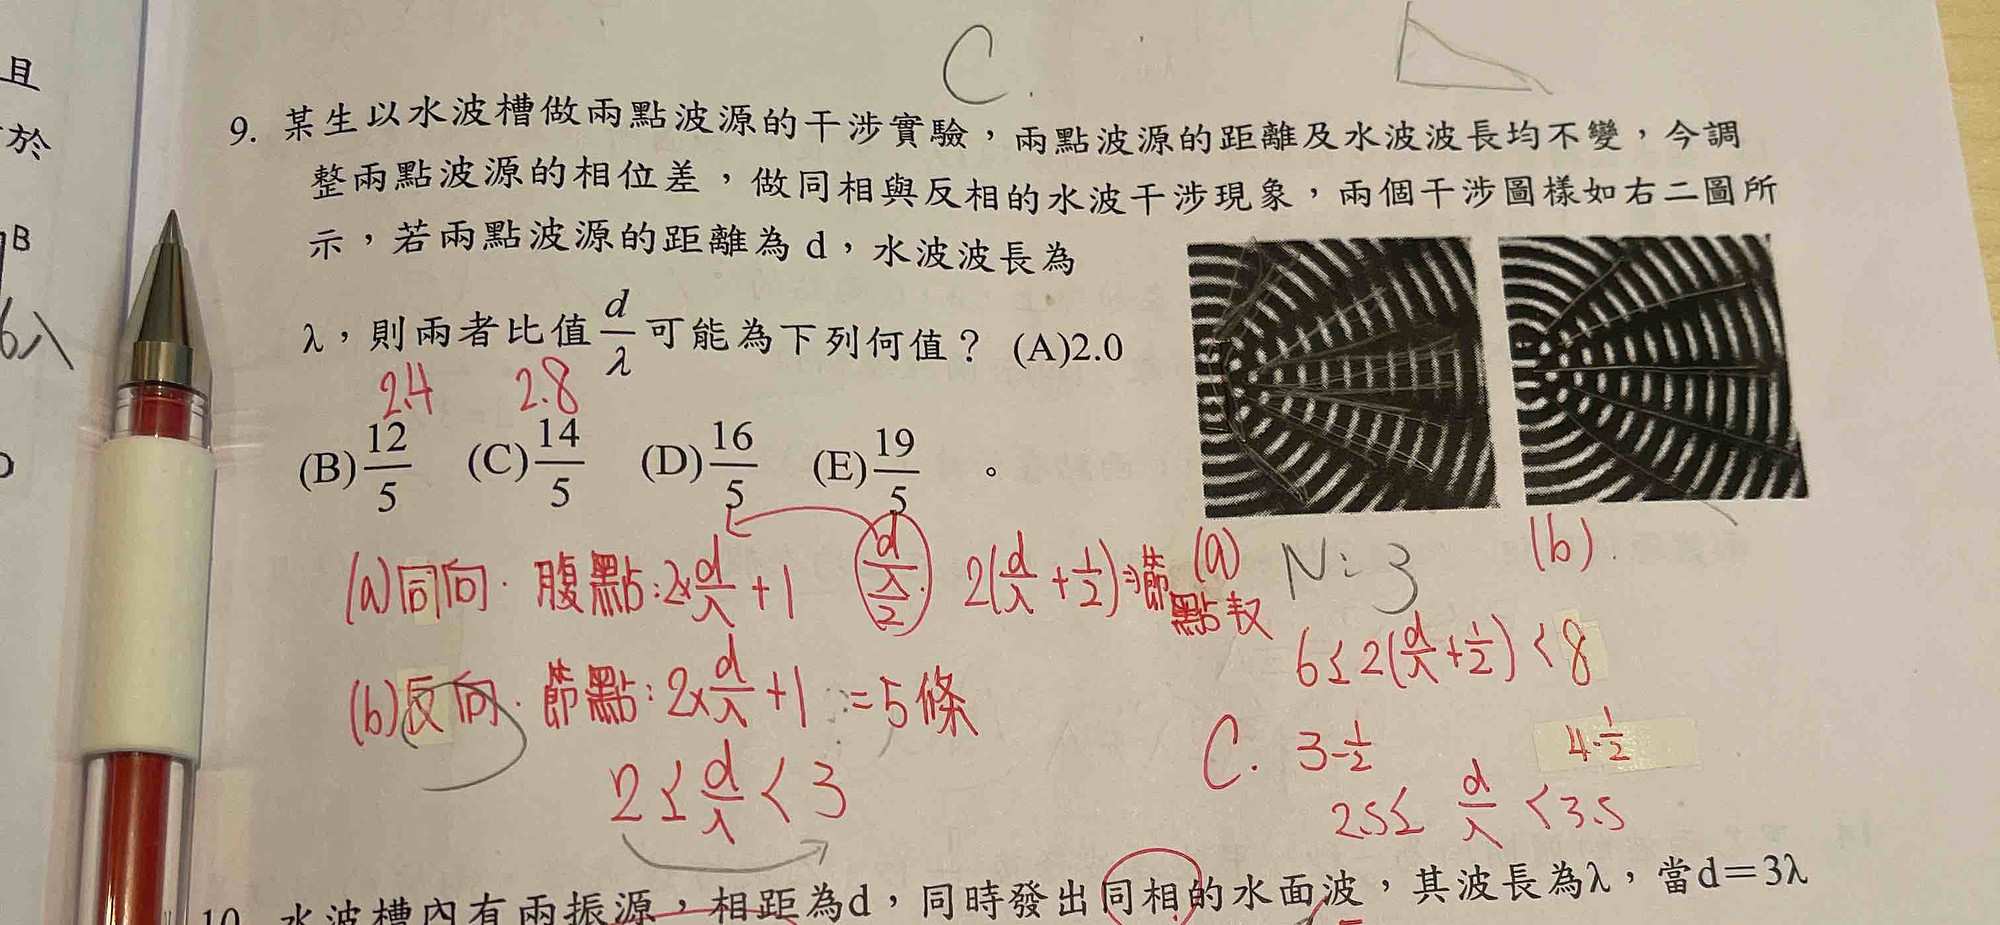 且
於
B
6λ
C.
9. 某生以水波槽做兩點波源的干涉實驗，兩點波源的距離及水波波長均不變，今調
整兩點波源的相位差，做同相與反相的水波干涉現象，兩個干涉圖樣如右二圖所
示，若兩點波源的距離為 d，水波波長為
λ，則兩者比值 d/λ 可能為下列何值？ (A)2.0
2.4 2.8
(B) 12/5 (C) 14/5 (D) 16/5 (E) 19/5 。
(a) (b).
(a)同向. 腹點:2×d/λ+1 d/(λ/2) 2(d/λ+1/2):節點數 N:3
6≤2(d/λ+1/2)<8
(b)反向. 節點:2×d/λ+1=5條
2≤d/λ<3
C. 3-1/2 4-1/2
2.5≤ d/λ <3.5
10. 水波槽內有兩振源，相距為d，同時發出同相的水面波，其波長為λ，當d=3λ